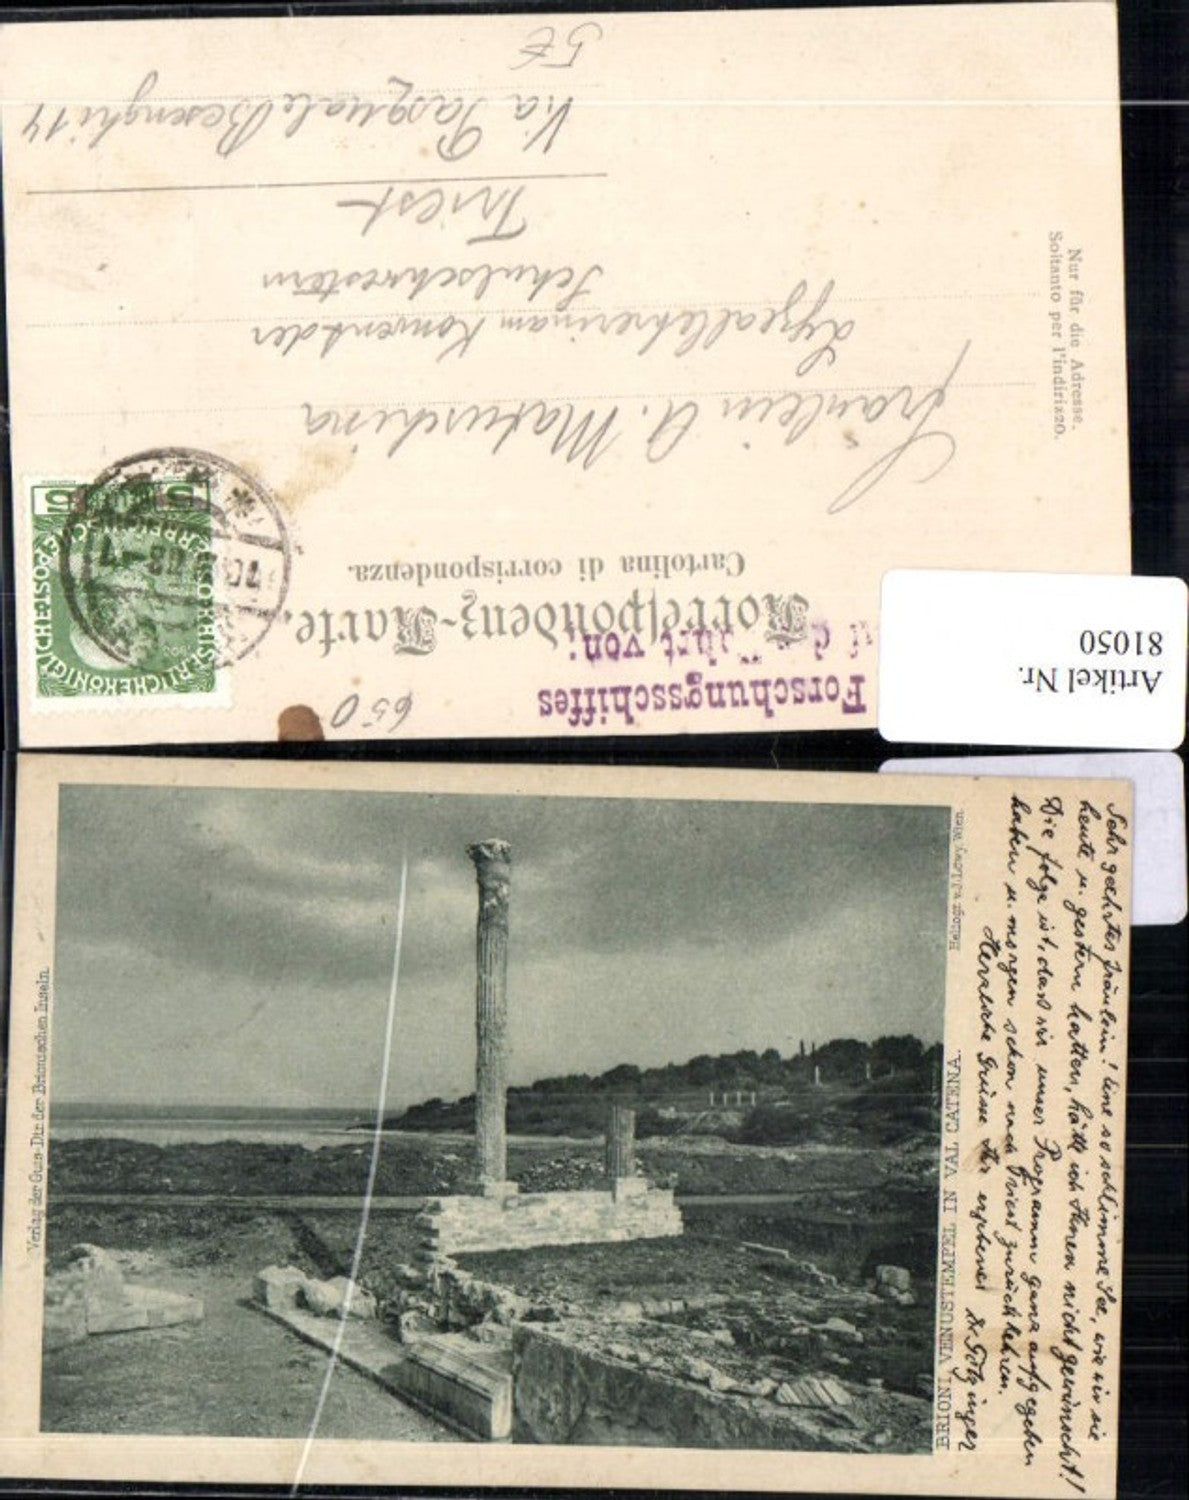 Artikel Nr.
81050
650
Forschungsschiffes
Fahrt von:
Korrespondenz-Karte.
Cartolina di corrispondenza.
Nur für die Adresse.
Soltanto per l'indirizzo.
5
Fräulein A. Matuschina
Lyzeallehrerin am Konvent der
Schulschwestern
Triest
Via Pasquale Besenghi 14
5€
Verlag der Guts-Dir. der Brionischen Inseln.
Heliogr. v. J. Löwy, Wien.
BRIONI, VENUSTEMPEL IN VAL CATENA.
Sehr geehrtes Fräulein! Eine so schlimme See, wie wir sie
heute u. gestern hatten, hätt ich Ihnen nicht gewünscht!
Die Folge ist, dass wir unser Programm ganz aufgegeben
haben u. morgen schon nach Triest zurückkehren.
Herzliche Grüsse Ihr ergebener Dr Götzinger